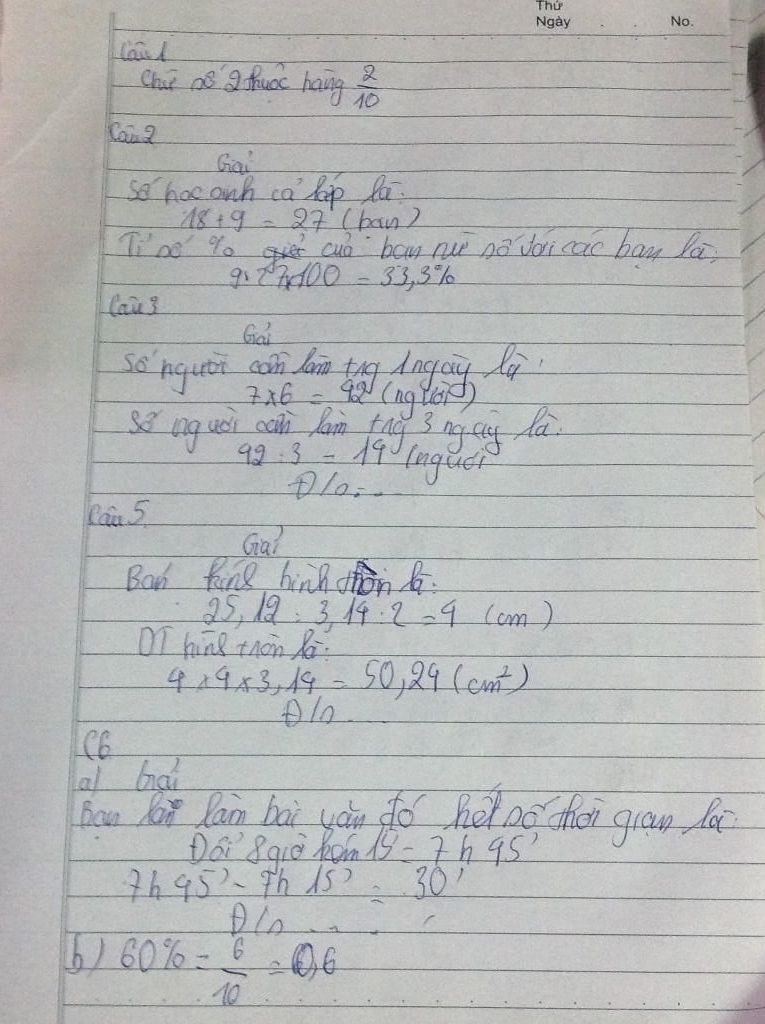 Thứ
Ngày . . No.
Câu 1
Chữ số 2 thuộc hàng 2/10
Câu 2
Giải
Số học sinh cả lớp là:
18 + 9 = 27 (bạn)
Tỉ số % của bạn nữ số với các bạn là:
9 : 27 x 100 = 33,3%
Câu 3
Giải
Số người cần làm trg 1 ngày là:
7 x 6 = 42 (người)
Số người cần làm trg 3 ngày là:
42 : 3 = 14 (người
Đ/s: ...
Câu 5
Giải
Bán kính hình tròn là:
25,12 : 3,14 : 2 = 4 (cm)
DT hình tròn là:
4 x 4 x 3,14 = 50,24 (cm²)
Đ/s ...
C6
a) Giải
Bạn làm bài văn đó hết số thời gian là:
Đổi 8 giờ kém 15' = 7h 45'
7h 45' - 7h 15' = 30'
Đ/s ...
b) 60% = 6/10 = 0,6